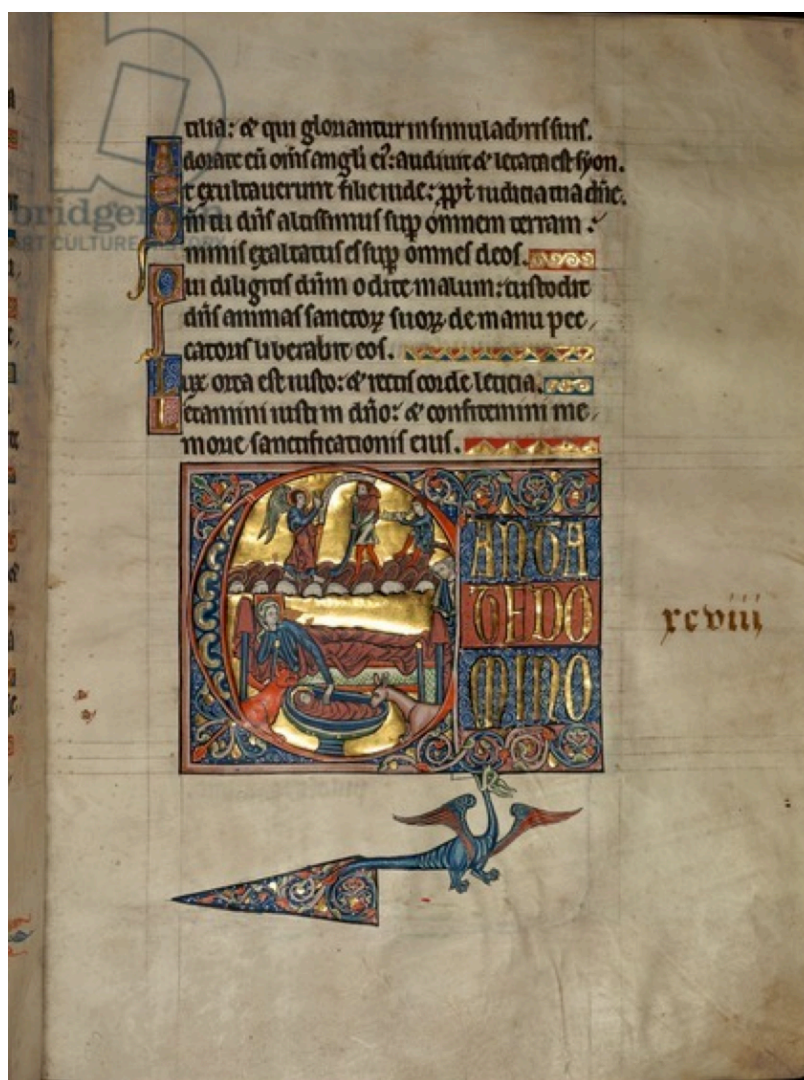 tilia: & qui gloriantur in simulachris suis.
Adorate eū om̄s angli ei': audiuit & letata est syon.
Et exultauerunt filie iude: ꝓpt̄ iudicia tua dn̄e.
Qm̄ tu dn̄s altissimus sup̱ omnem terram:
nimis exaltatus es sup̱ omnes deos.
Qui diligitis dn̄m odite malum: custodit
dn̄s animas sanctoꝝ suoꝝ de manu pec
catoris liberabit eos.
Lux orta est iusto: & rectis corde leticia.
Letamini iusti in dn̄o: & confitemini me
morie sanctificationis eius.
CANTA
TE DO
MINO
xcviii
ART CULTURE HISTORY